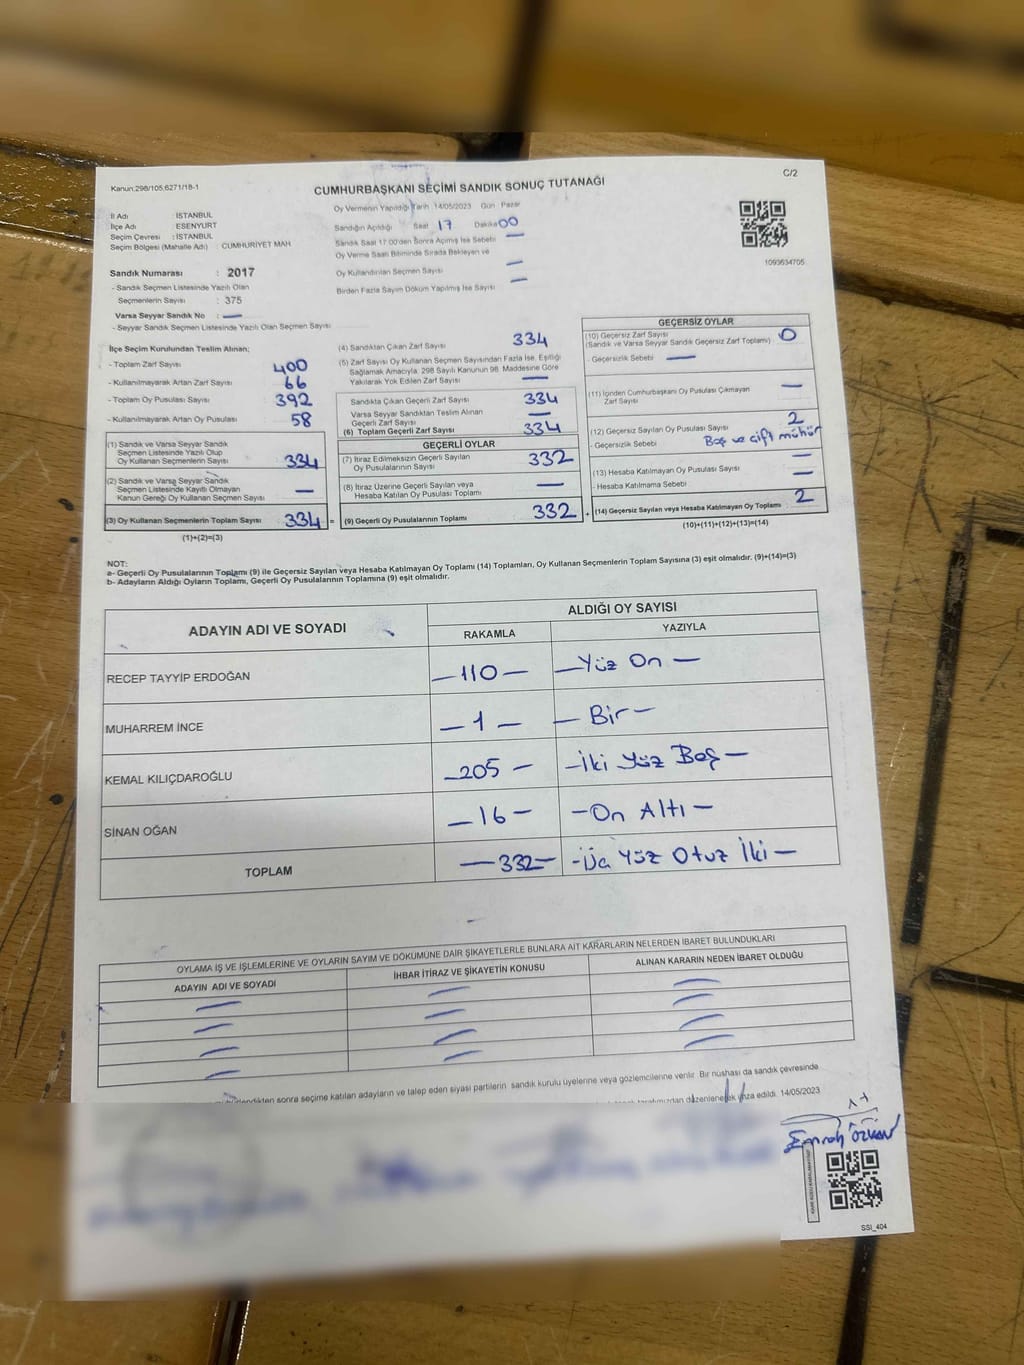 Kanun:298/105,6271/18-1
C/2
CUMHURBAŞKANI SEÇİMİ SANDIK SONUÇ TUTANAĞI
İl Adı : İSTANBUL
İlçe Adı : ESENYURT
Seçim Çevresi : İSTANBUL
Seçim Bölgesi (Mahalle Adı) : CUMHURİYET MAH
Oy Vermenin Yapıldığı Tarih 14/05/2023 Gün : Pazar
Sandığın Açıldığı Saat 17 Dakika 00
Sandık Saat 17:00'den Sonra Açımış İse Sebebi —
Oy Verme Saati Bitiminde Sırada Bekleyen ve
Oy Kullandırılan Seçmen Sayısı —
Birden Fazla Sayım Döküm Yapılmış İse Sayısı —
1093634705
Sandık Numarası : 2017
- Sandık Seçmen Listesinde Yazılı Olan
Seçmenlerin Sayısı : 375
Varsa Seyyar Sandık No : —
- Seyyar Sandık Seçmen Listesinde Yazılı Olan Seçmen Sayısı
İlçe Seçim Kurulundan Teslim Alınan;
- Toplam Zarf Sayısı 400
- Kullanılmayarak Artan Zarf Sayısı 66
- Toplam Oy Pusulası Sayısı 392
- Kullanılmayarak Artan Oy Pusulası 58
(1) Sandık ve Varsa Seyyar Sandık
Seçmen Listesinde Yazılı Olup
Oy Kullanan Seçmenlerin Sayısı 334
(2) Sandık ve Varsa Seyyar Sandık
Seçmen Listesinde Kayıtlı Olmayan
Kanun Gereği Oy Kullanan Seçmen Sayısı —
(3) Oy Kullanan Seçmenlerin Toplam Sayısı 334 =
(1)+(2)=(3)
(4) Sandıktan Çıkan Zarf Sayısı 334
(5) Zarf Sayısı Oy Kullanan Seçmen Sayısından Fazla İse, Eşitliği
Sağlamak Amacıyla, 298 Sayılı Kanunun 98. Maddesine Göre
Yakılarak Yok Edilen Zarf Sayısı —
Sandıkta Çıkan Geçerli Zarf Sayısı 334
Varsa Seyyar Sandıktan Teslim Alınan
Geçerli Zarf Sayısı —
(6) Toplam Geçerli Zarf Sayısı 334
GEÇERLİ OYLAR
(7) İtiraz Edilmeksizin Geçerli Sayılan
Oy Pusulalarının Sayısı 332
(8) İtiraz Üzerine Geçerli Sayılan veya
Hesaba Katılan Oy Pusulası Toplamı —
(9) Geçerli Oy Pusulalarının Toplamı 332 +
GEÇERSİZ OYLAR
(10) Geçersiz Zarf Sayısı
(Sandık ve Varsa Seyyar Sandık Geçersiz Zarf Toplamı) 0
- Geçersizlik Sebebi —
(11) İçinden Cumhurbaşkanı Oy Pusulası Çıkmayan
Zarf Sayısı —
(12) Geçersiz Sayılan Oy Pusulası Sayısı 2
- Geçersizlik Sebebi Boş ve çift mühür
(13) Hesaba Katılmayan Oy Pusulası Sayısı —
- Hesaba Katılmama Sebebi —
(14) Geçersiz Sayılan veya Hesaba Katılmayan Oy Toplamı 2
(10)+(11)+(12)+(13)=(14)
NOT:
a- Geçerli Oy Pusulalarının Toplamı (9) ile Geçersiz Sayılan veya Hesaba Katılmayan Oy Toplamı (14) Toplamları, Oy Kullanan Seçmenlerin Toplam Sayısına (3) eşit olmalıdır. (9)+(14)=(3)
b- Adayların Aldığı Oyların Toplamı, Geçerli Oy Pusulalarının Toplamına (9) eşit olmalıdır.
ADAYIN ADI VE SOYADI
ALDIĞI OY SAYISI
RAKAMLA YAZIYLA
RECEP TAYYİP ERDOĞAN —110— —Yüz On—
MUHARREM İNCE —1— —Bir—
KEMAL KILIÇDAROĞLU —205— —İki Yüz Beş—
SİNAN OĞAN —16— —On Altı—
TOPLAM —332— —Üç Yüz Otuz İki—
OYLAMA İŞ VE İŞLEMLERİNE VE OYLARIN SAYIM VE DÖKÜMÜNE DAİR ŞİKAYETLERLE BUNLARA AİT KARARLARIN NELERDEN İBARET BULUNDUKLARI
ADAYIN ADI VE SOYADI İHBAR İTİRAZ VE ŞİKAYETİN KONUSU ALINAN KARARIN NEDEN İBARET OLDUĞU
sonra seçime katılan adayların ve talep eden siyasi partilerin sandık kurulu üyelerine veya gözlemcilerine verilir. Bir nüshası da sandık çevresinde
düzenlenerek imza edildi. 14/05/2023
Emrah ÖZKAN
SSİ_404